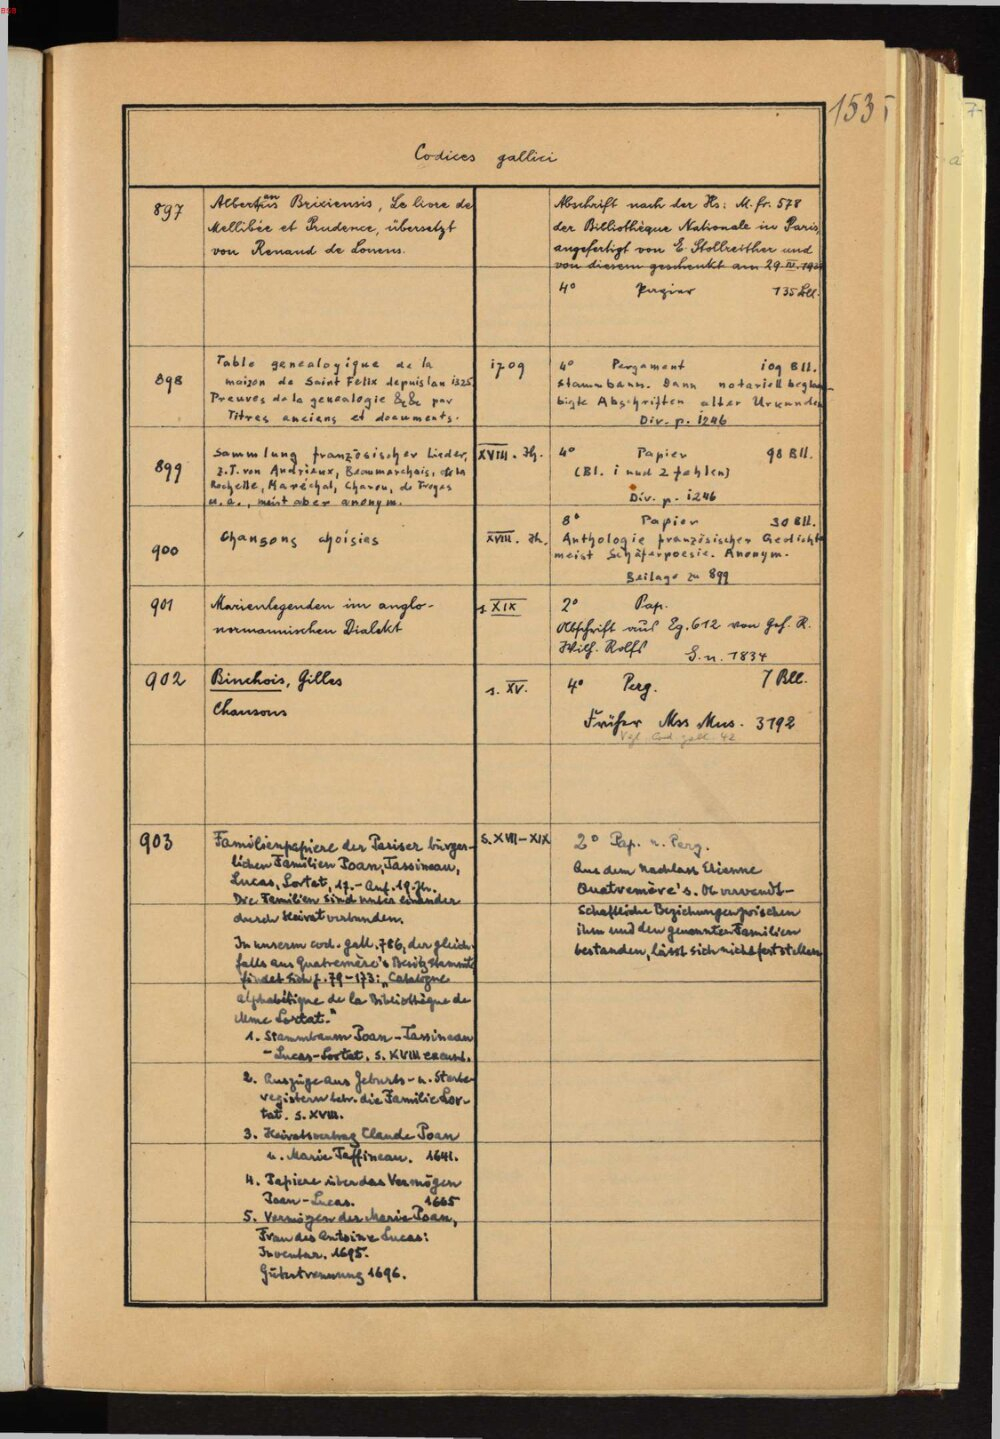 BSB
153
Codices gallici
897
Albertanus Brixiensis, Le livre de
Mellibée et Prudence, übersetzt
von Renaud de Louens.
Abschrift nach der Hs: M. fr. 578
der Bibliothèque Nationale in Paris,
angefertigt von E. Stollreither und
von diesem geschenkt am 29. IV.
4° Papier 135 Bll.
898
Table genealogique de la
maizon de Saint Felix depuis lan 1325
Preuves de la genealogie &c&c par
Titres anciens et documents.
1709
4° Pergament 109 Bll.
Stammbaum. Dann notariell beglau-
bigte Abschriften alter Urkunden
Div. p. 1246
899
Sammlung französischer Lieder,
z.T. von Andrieux, Beaumarchais, de la
Rochelle, Maréchal, Charon, de Troyes
u.a., meist aber anonym.
XVIII. Jh.
4° Papier 98 Bll.
(Bl. 1 und 2 fehlen)
Div. p. 1246
900
Chansons choisies
XVIII. Jh.
8° Papier 30 Bll.
Anthologie französischer Gedichte
meist Schäferpoesie. Anonym.
Beilage zu 899
901
Marienlegenden im anglo-
normannischen Dialekt
s. XIX
2° Pap.
Abschrift aus Eg. 612 von Geh. R.
Wilh. Rolfs
S. n. 1834
902
Binchois, Gilles
Chansons
s. XV.
4° Perg. 7 Bll.
Früher Mss Mus. 3192
Vgl. Cod. gall. 42
903
Familienpapiere der Pariser bürger-
lichen Familien Poan, Tassineau,
Lucas, Lortat, 17.- Anf. 19. Jh.
Die Familien sind unter einander
durch Heirat verbunden.
In unserm cod. gall. 786, der gleich-
falls aus Quatremère's Besitz stammt
findet sich f. 79-173: „Catalogue
alphabétique de la Bibliothèque de
Mme Lortat."
1. Stammbaum Poan - Tassineau
- Lucas - Lortat. s. XVIII exeunt.
2. Auszüge aus Geburts- u. Sterbe-
registern betr. die Familie Lor-
tat. s. XVIII.
3. Heiratsvertrag Claude Poan
u. Marie Taffineau. 1641.
4. Papiere über das Vermögen
Poan - Lucas. 1665
5. Vermögen der Marie Poan,
Frau des Antoine Lucas:
Inventar. 1695.
Gütertrennung 1696.
s. XVII-XIX
2° Pap. u. Perg.
Aus dem Nachlass Etienne
Quatremère's. Ob verwandt-
schaftliche Beziehungen zwischen
ihm und den genannten Familien
bestanden, lässt sich nicht feststellen